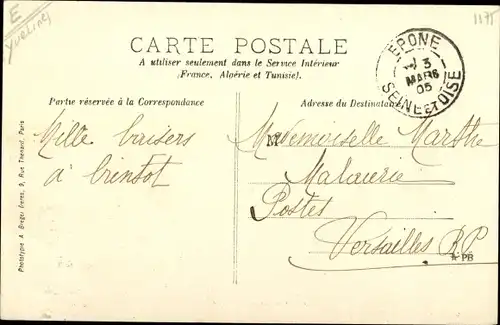 E
Yvelines
1175
CARTE POSTALE
A utiliser seulement dans le Service Intérieur
(France, Algérie et Tunisie).
EPONE
3
MARS
05
SEINE ET OISE
Partie réservée à la Correspondance
Adresse du Destinataire
Mille baisers
à bientôt
M
Mademoiselle Marthe
Postes
Versailles R.P.
PB
Phototype A. Breger frères, 9, Rue Thénard, Paris